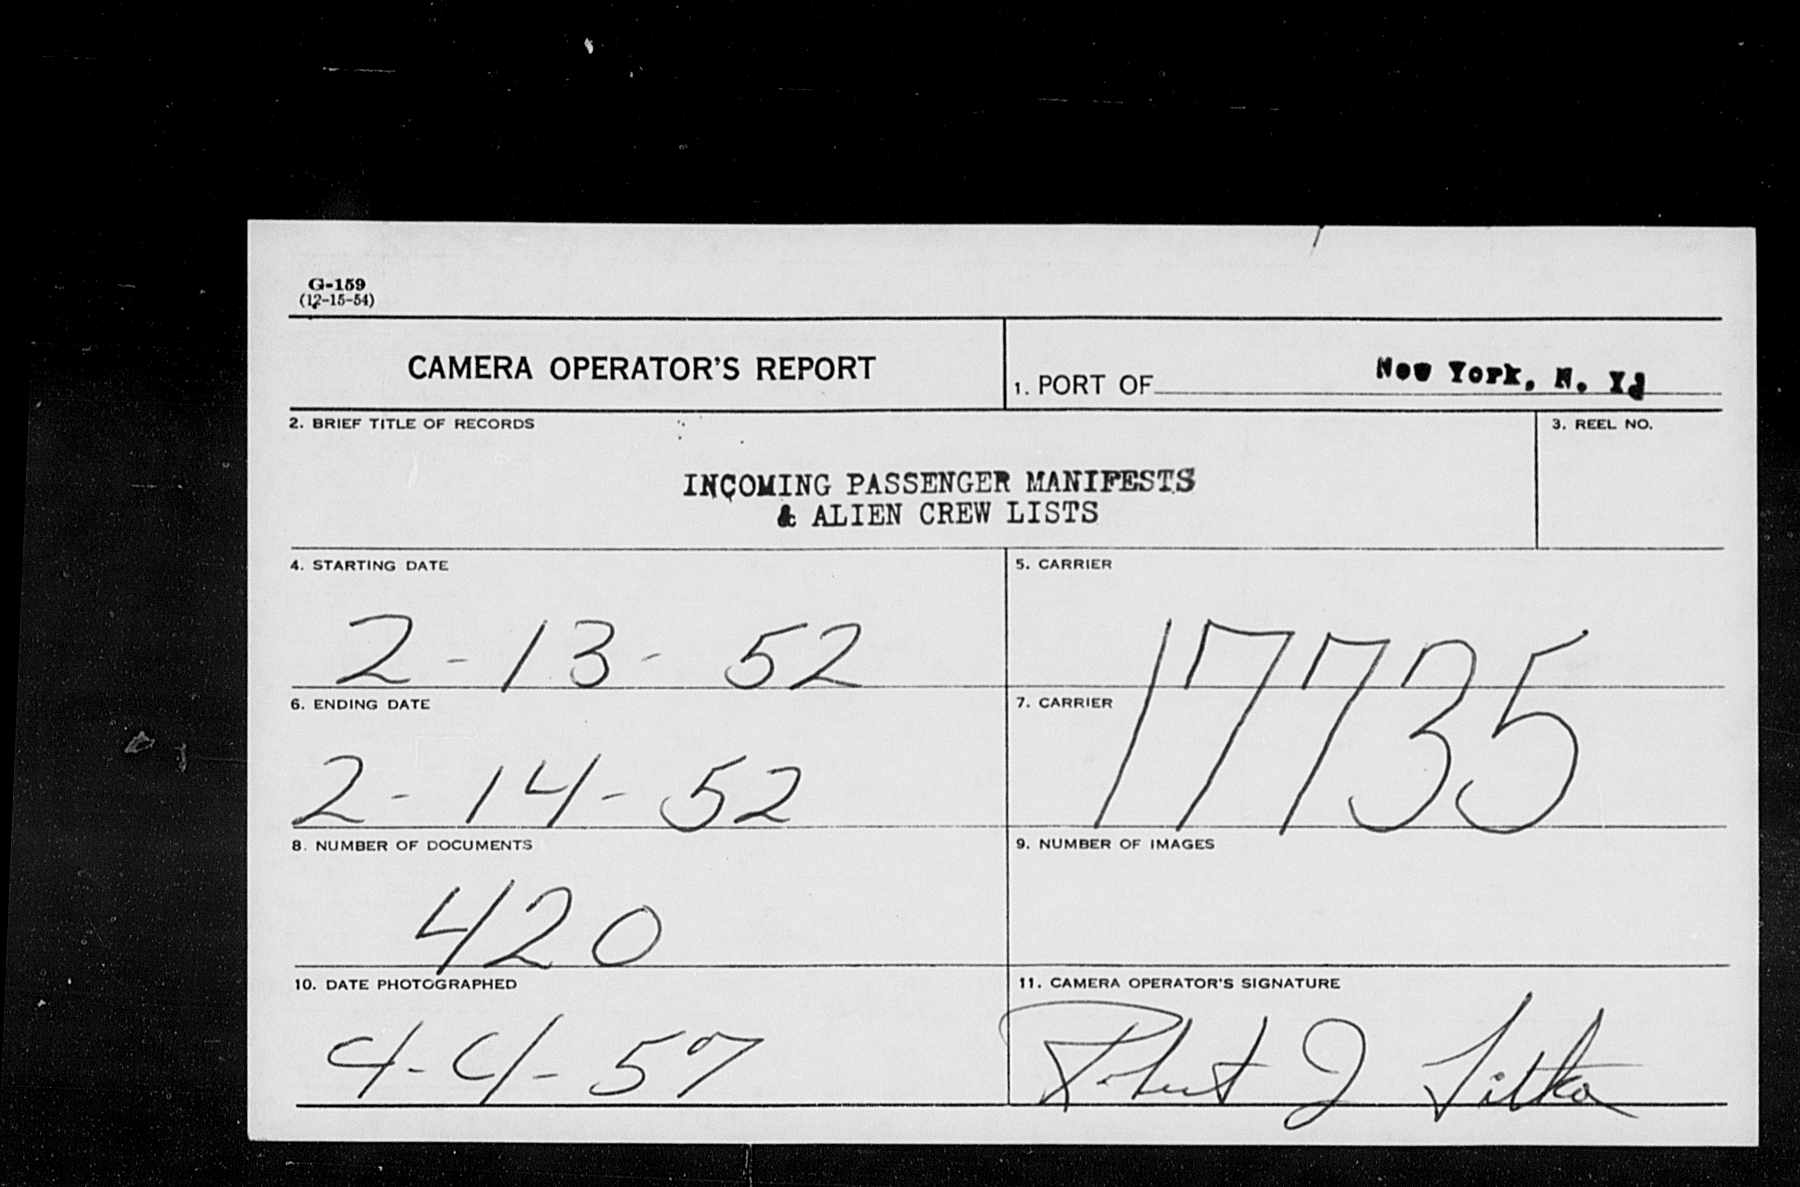 G-159
(12-15-54)
CAMERA OPERATOR'S REPORT
1. PORT OF New York, N. Y.
2. BRIEF TITLE OF RECORDS
3. REEL NO.
INCOMING PASSENGER MANIFESTS
& ALIEN CREW LISTS
4. STARTING DATE
5. CARRIER
2-13-52
17735
6. ENDING DATE
7. CARRIER
2-14-52
8. NUMBER OF DOCUMENTS
9. NUMBER OF IMAGES
420
10. DATE PHOTOGRAPHED
11. CAMERA OPERATOR'S SIGNATURE
4-4-57
Robert J